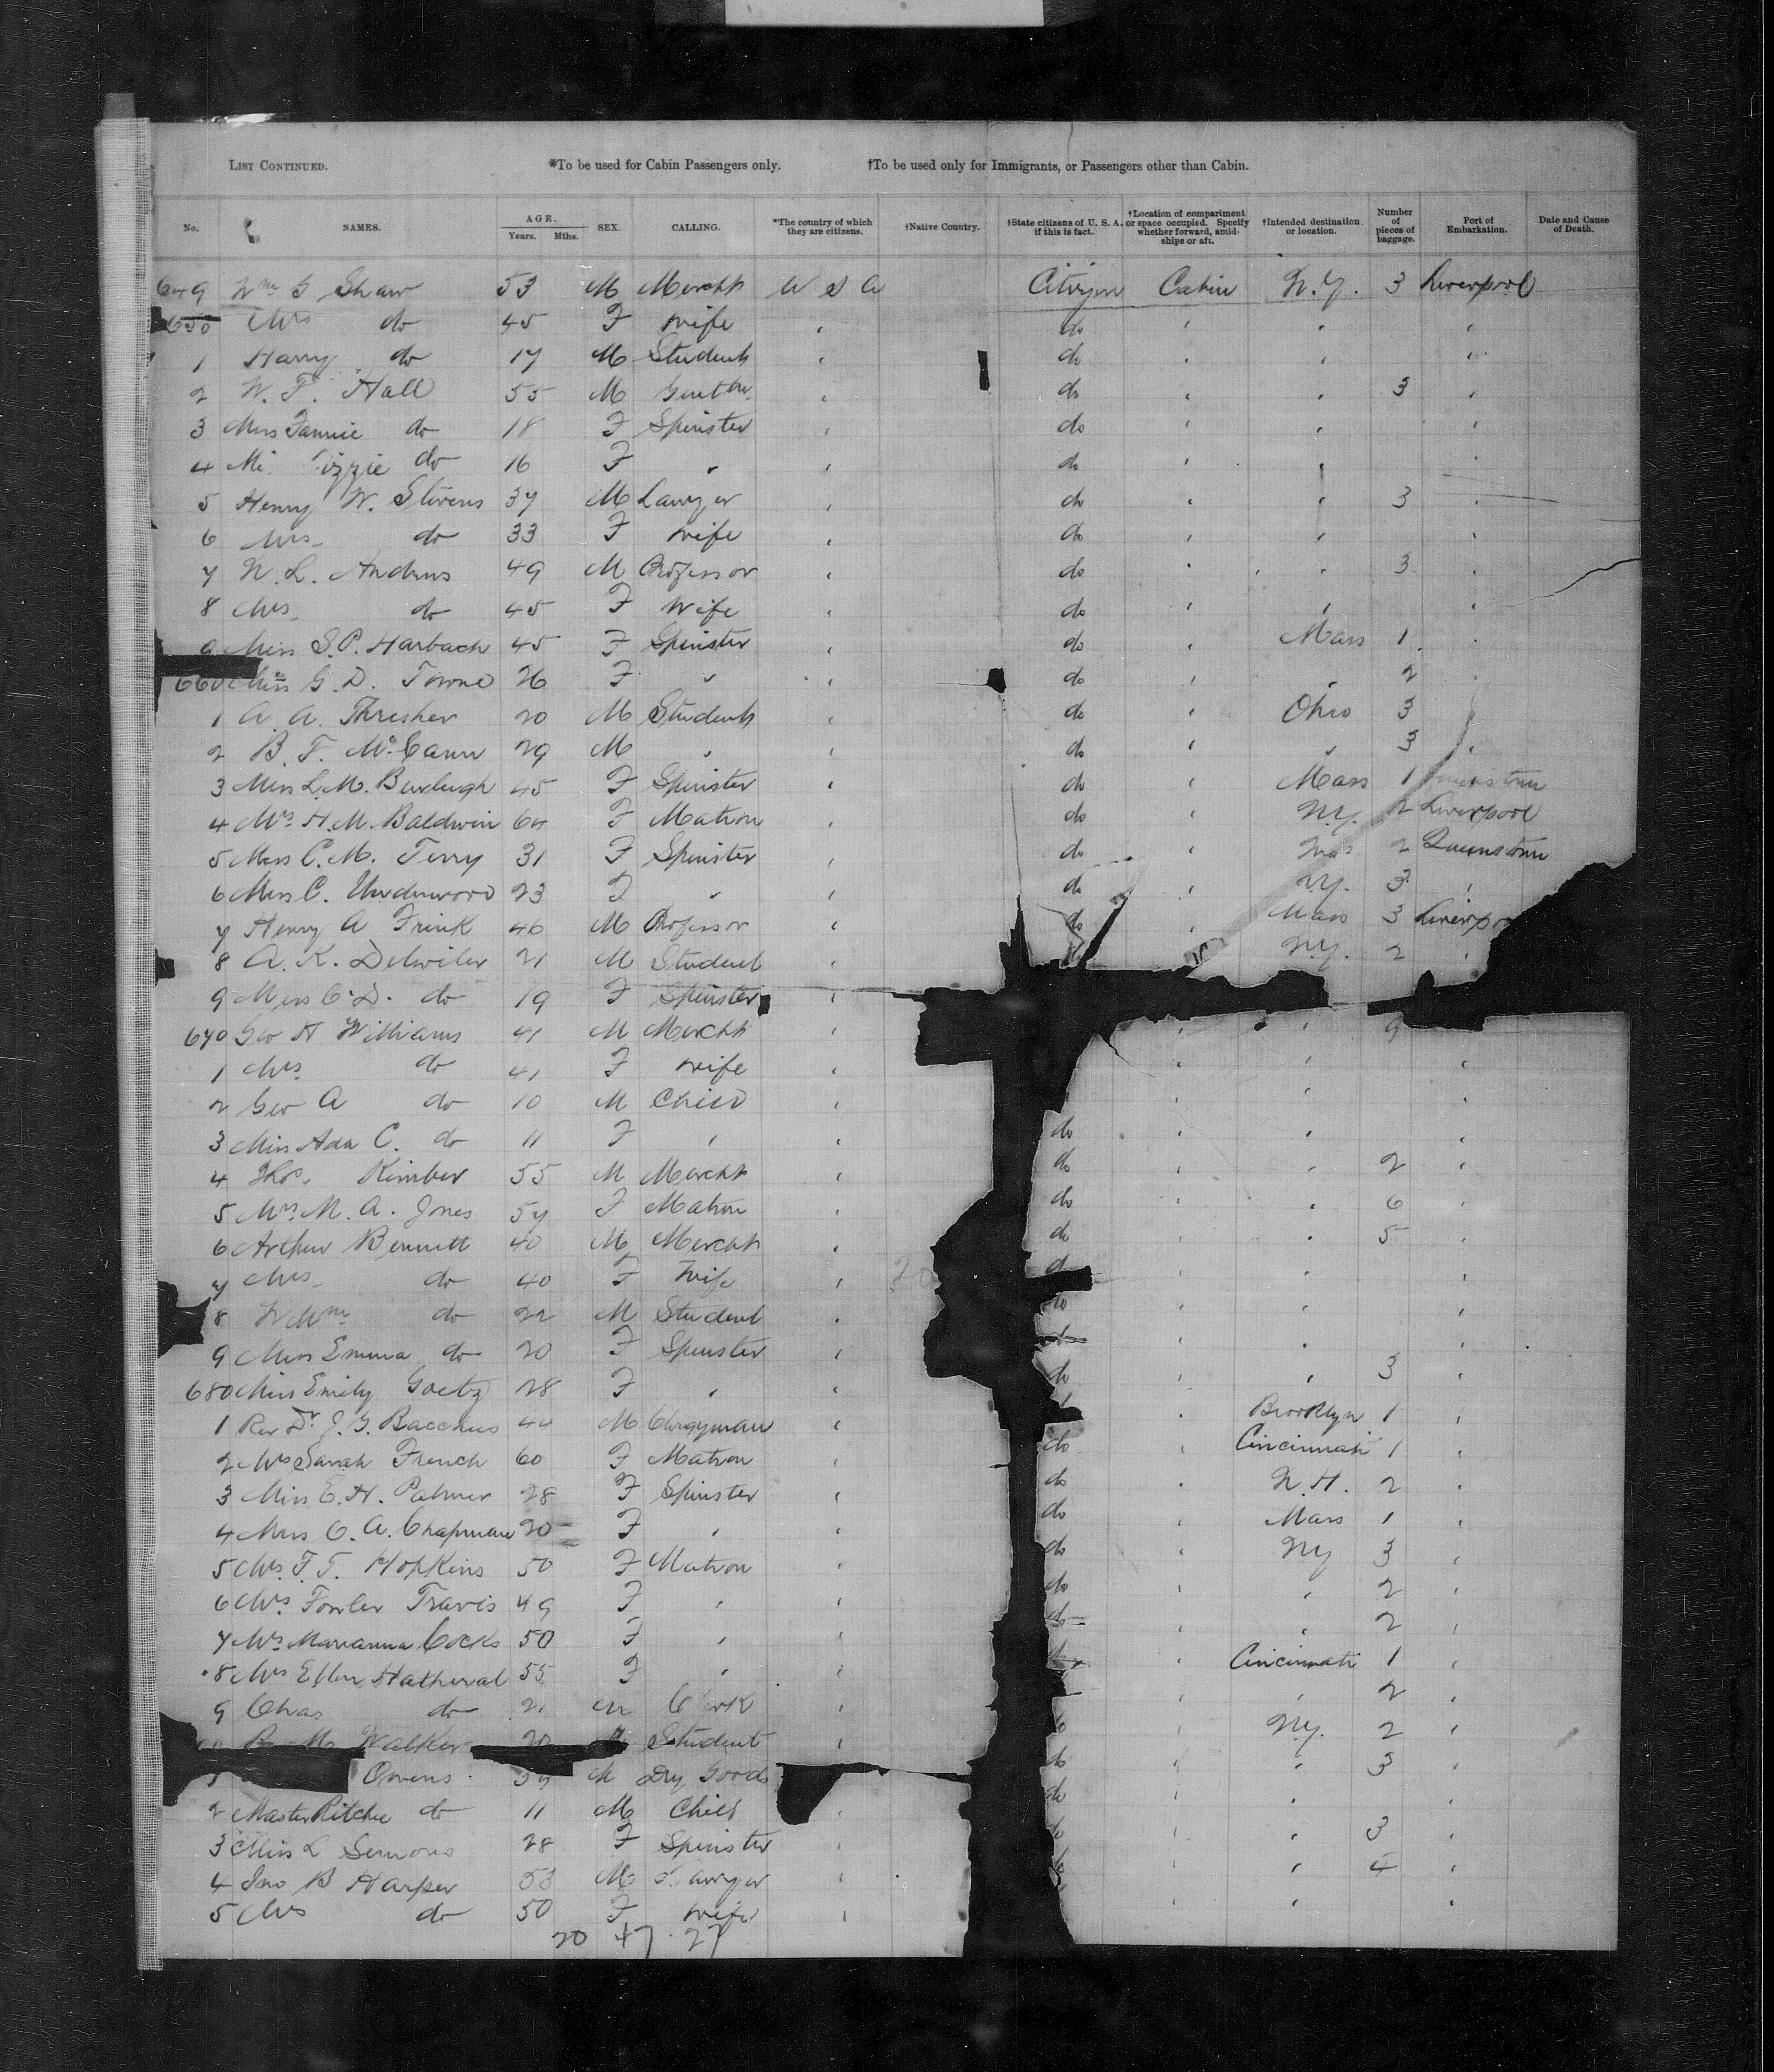 LIST CONTINUED. *To be used for Cabin Passengers only. †To be used only for Immigrants, or Passengers other than Cabin.
No. NAMES. AGE. Years. Mths. SEX. CALLING. *The country of which they are citizens. †Native Country. †State citizens of U. S. A. if this is fact. †Location of compartment or space occupied. Specify whether forward, amid-ships or aft. †Intended destination or location. Number of pieces of baggage. Port of Embarkation. Date and Cause of Death.
649 Wm G Shaw 53 M Mercht U S A Citizen Cabin N.Y. 3 Liverpool
650 Mrs do 45 F wife ' do ' ' '
1 Harry do 17 M Student ' do ' ' '
2 W. F. Hall 55 M Gentn. ' do ' ' 3 '
3 Miss Fannie do 18 F Spinster ' do ' ' '
4 izzie do 16 F " ' do ' ' '
5 Henry W. Stevens 37 M Lawyer ' do ' ' 3 '
6 Mrs do 33 F wife ' do ' ' '
7 N. L. Andrews 49 M Professor ' do ' ' 3 '
8 Mrs. do 45 F Wife ' do ' ' '
9 Miss S. P. Harbach 45 F Spinster ' do ' Mass 1 '
660 Miss G. D. Towne 26 F " ' do ' ' 2 '
1 A. A. Thresher 20 M Student ' do ' Ohio 3
2 B. F. McCann 29 M " ' do ' " 3 '
3 Miss L. M. Burleigh 45 F Spinster ' do ' Mass 1
4 Mrs H. M. Baldwin 64 F Matron ' do ' N.Y. 2 Liverpool
5 Miss C. M. Terry 31 F Spinster ' do ' 2 Queenstown
6 Miss C. Underwood 23 F " ' do ' N.Y. 3 '
7 Henry A Frink 46 M Professor ' do ' Mass 3 Liverpo
8 A. K. Detwiler 21 M Student ' N.Y. 2 '
9 Miss C. D. do 19 F Spinster '
670 Geo H Williams 41 M Mercht ' ' ' 9
1 Mrs do 41 F wife ' ' ' '
2 Geo A do 10 M Child ' ' ' '
3 Miss Ada C. do 11 F ' ' do ' ' '
4 Thos. Kimber 55 M Mercht ' do ' ' 2 '
5 Mrs. M. A. Jones 57 F Matron ' do ' ' 6 '
6 Arthur Bennett 40 M Mercht ' do ' ' 5 '
7 Mrs do 40 F Wife ' 20 d ' ' '
8 do 22 M Student ' do ' ' '
9 Miss Emma do 20 F Spinster ' do ' ' '
680 Miss Emily Goetz 28 F ' ' do ' ' 3 '
1 Rev Dr. J. G. Bacchus 44 M Clergyman ' ' Brooklyn 1 '
2 Mrs Sarah French 60 F Matron ' do ' Cincinnati 1 '
3 Miss E. H. Palmer 28 F Spinster ' do ' N.H. 2 '
4 Miss C. A. Chapman 20 F ' ' do ' Mass 1 '
5 Mrs. F. T. Hopkins 50 F Matron ' do ' NY 3 '
6 Mrs. Fowler Travis 49 F ' ' do ' 2 '
7 Mrs Marianna Cocks 50 F ' ' do ' 2 '
8 Mrs Ellen Hatheral 55 F ' ' ' Cincinnati 1 '
9 Chas do 21 M Clerk ' ' 2 '
M Walker 20 Student ' do ' N.Y. 2 '
Owens M Dry Goods do ' ' 3 '
2 Master Ritchie do 11 M Child ' do ' ' '
3 Miss L Semons 28 F Spinster ' do ' ' 3 '
4 Jno B Harper 53 M Lawyer ' ' ' 4 '
5 Mrs do 50 F wife ' ' ' '
20 47 27